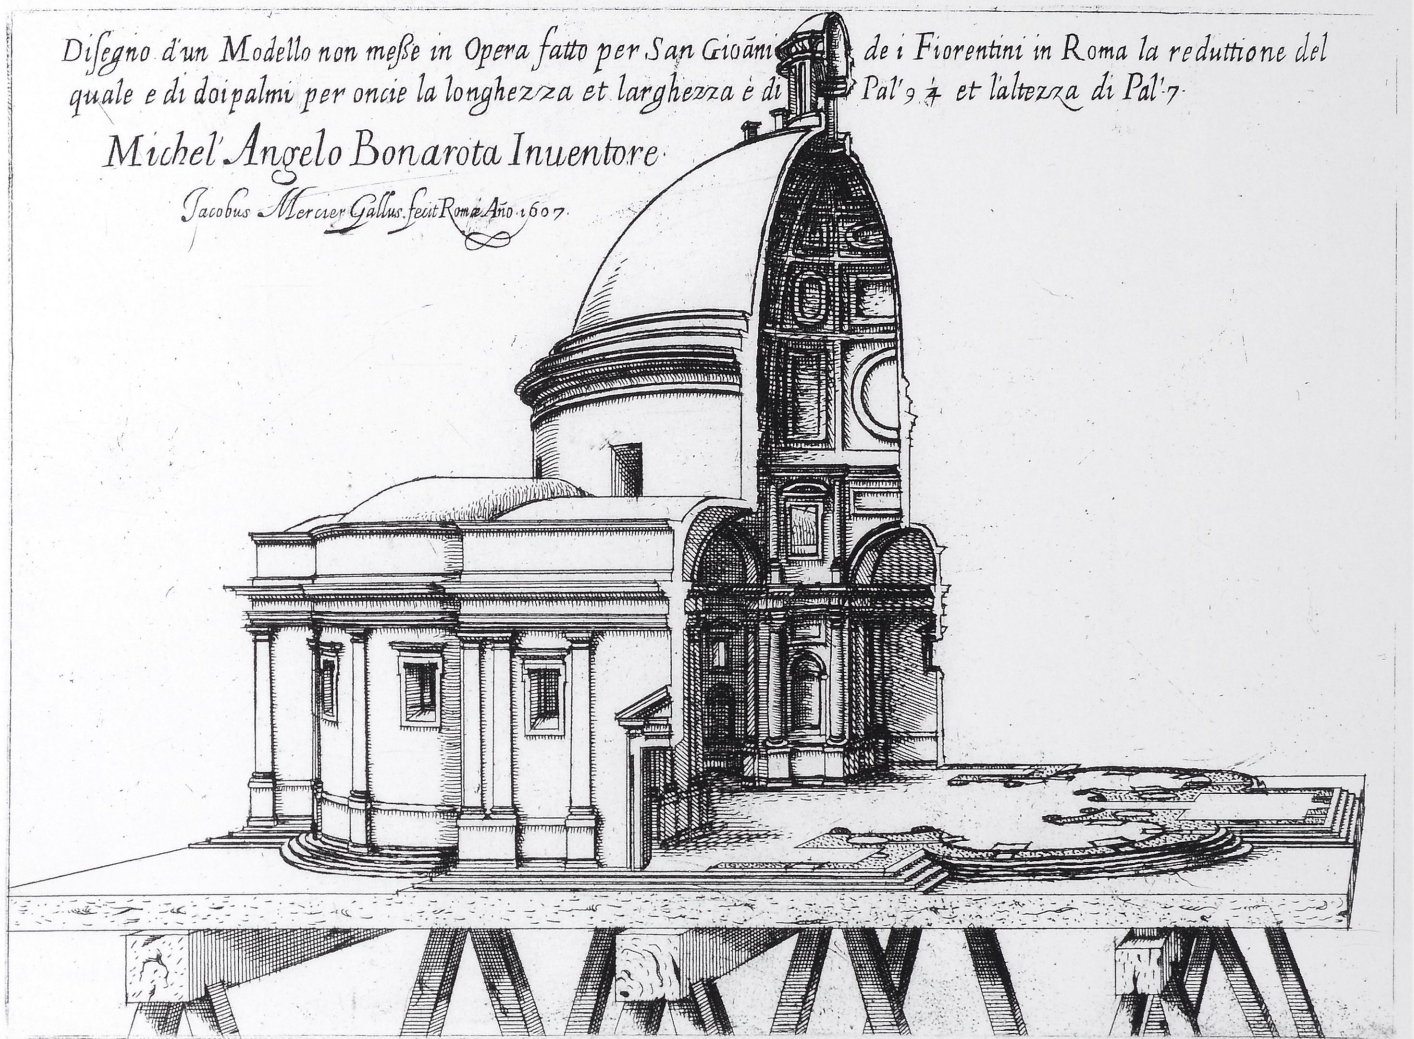 Disegno d'un Modello non messe in Opera fatto per San Gioãni de i Fiorentini in Roma la reduttione del
quale e di doi palmi per oncie la longhezza et larghezza è di Pal' 9 ¾ et l'altezza di Pal' 7.
Michel' Angelo Bonarota Inuentore.
Jacobus Mercier Gallus. fecit Romæ Año. 1607.